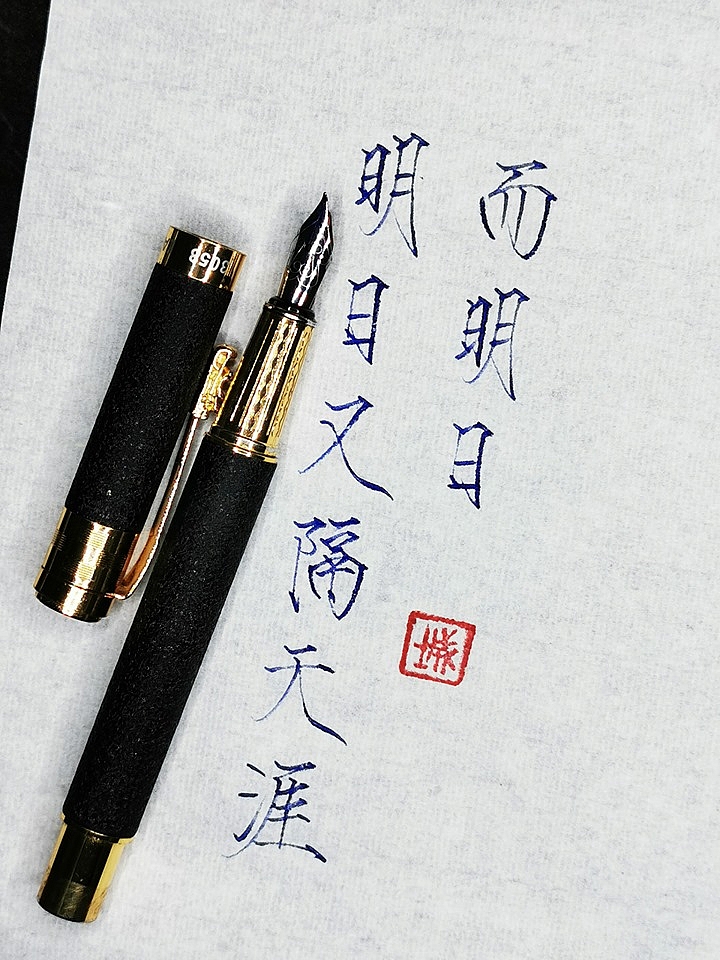 而明日
明日又隔天涯
城